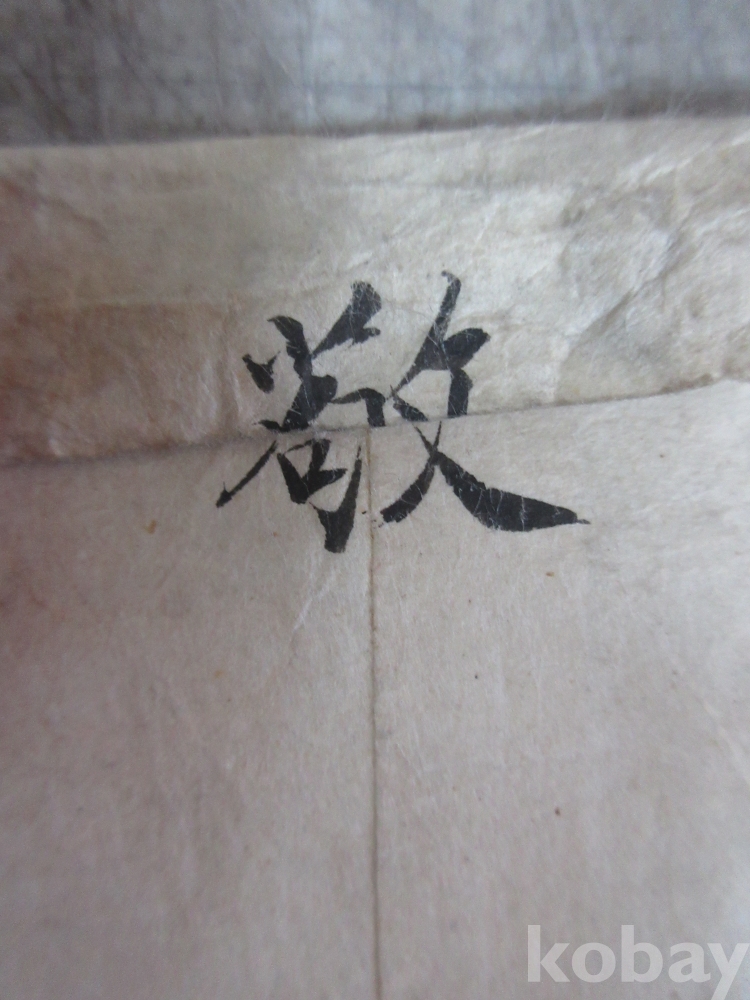 敬
kobay